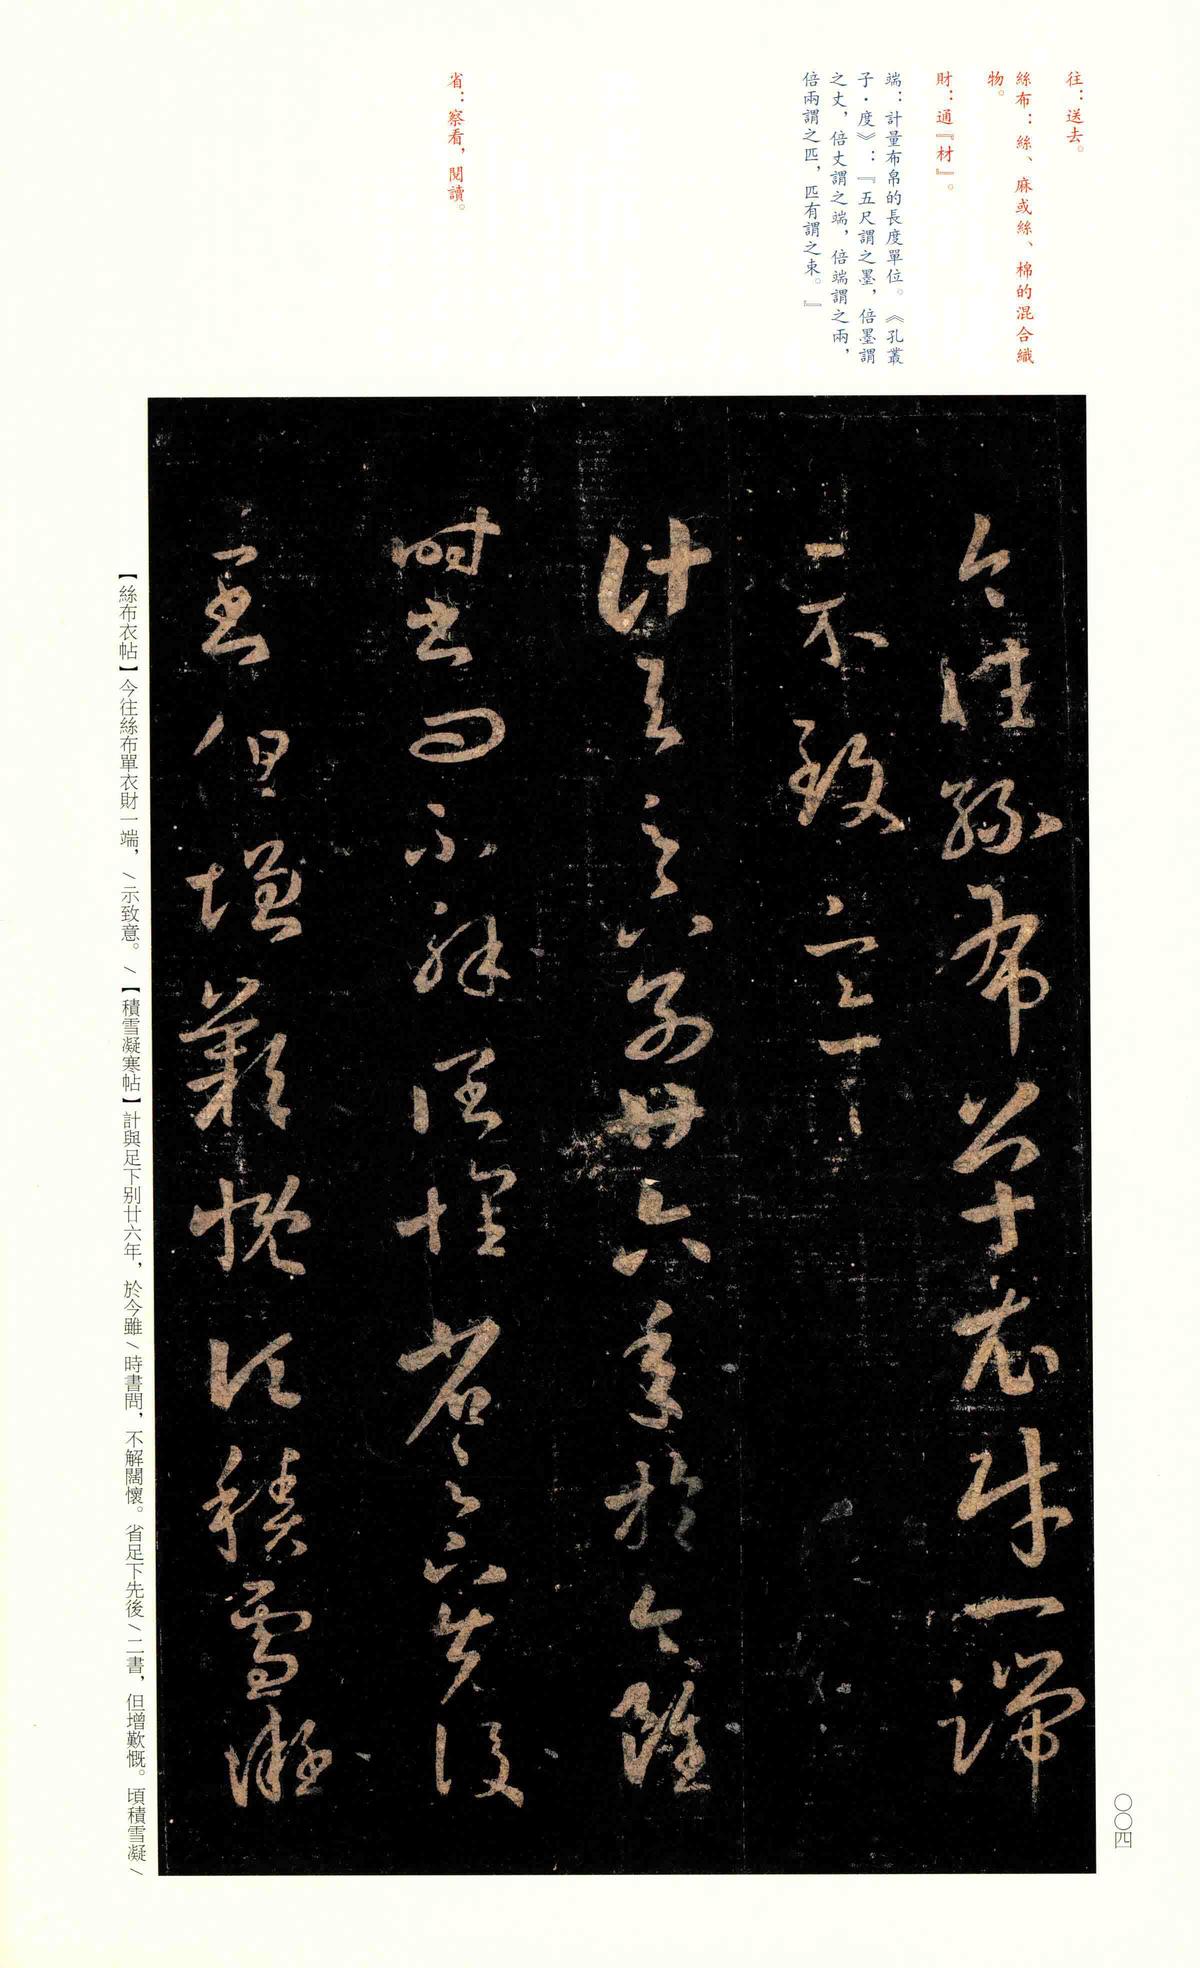 往：送去。
絲布：絲、麻或絲、棉的混合織
物。
財：通『材』。
端：計量布帛的長度單位。《孔叢
子·度》：『五尺謂之墨，倍墨謂
之丈，倍丈謂之端，倍端謂之兩，
倍兩謂之匹，匹有謂之束。』
省：察看，閱讀。
今往絲布單衣財一端
示致意
計與足下別廿六年於今雖
時書問不解闊懷省足下先後
二書但增歎慨頃積雪凝
【絲布衣帖】今往絲布單衣財一端，／示致意。／【積雪凝寒帖】計與足下別廿六年，於今雖／時書問，不解闊懷。省足下先後／二書，但增歎慨。頃積雪凝／
〇〇四